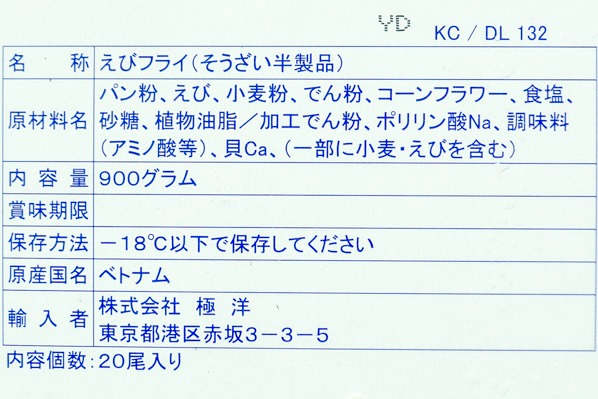 YD KC / DL 132
名称 えびフライ(そうざい半製品)
原材料名 パン粉、えび、小麦粉、でん粉、コーンフラワー、食塩、
砂糖、植物油脂/加工でん粉、ポリリン酸Na、調味料
(アミノ酸等)、貝Ca、(一部に小麦・えびを含む)
内容量 900グラム
賞味期限
保存方法 -18℃以下で保存してください
原産国名 ベトナム
輸入者 株式会社 極洋
東京都港区赤坂3-3-5
内容個数:20尾入り